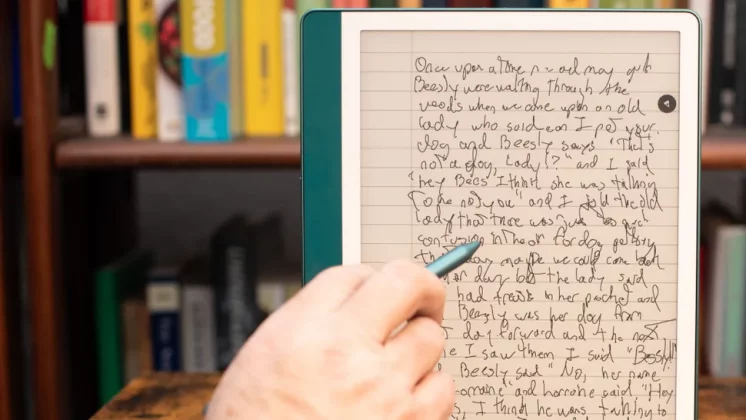 Once upon a time
Beesly were walking through the
woods when we came upon an old
lady who said can I pet your
dog and Beesly says "That's
not a dog, Lady!?" and I said
"hey Bees I think she was talking
to me not you" and I told the old
lady that there was just too much
confusion in the air for dog petting
maybe we could come back
day but the lady said
had treats in her pocket and
Beesly was her dog from
day forward and the next
I saw them I said "Beesly!"
Beesly said "No, her name
and horraine said "Hey
I think he was talking to